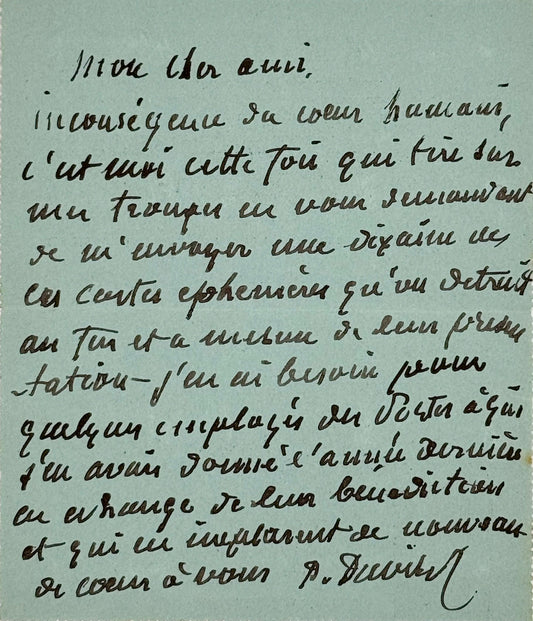 Mon cher ami,
inconséquence du cœur humain,
c'est moi cette fois qui tire sur
mes troupes en vous demandant
de m'envoyer une dixaine de
ces cartes ephemères qu'on detruit
au fur et a mesure de leur présen
tation - j'en ai besoin pour
quelques employés des Postes à qui
j'en avais donné l'année dernière
en echange de leur bénédiction
et qui en implorent de nouveau
de cœur à vous